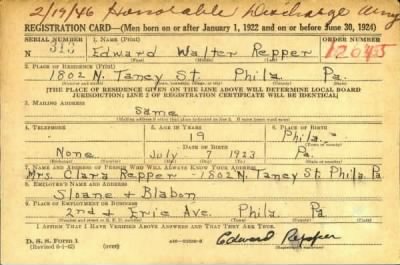 2/19/46 Honorable Discharge Army
REGISTRATION CARD—(Men born on or after January 1, 1922 and on or before June 30, 1924)
SERIAL NUMBER 1. NAME (Print) ORDER NUMBER
Edward Walter Repper 12045
(First) (Middle) (Last)
2. PLACE OF RESIDENCE (Print)
1802 N. Taney St. Phila. Pa.
[THE PLACE OF RESIDENCE GIVEN ON THE LINE ABOVE WILL DETERMINE LOCAL BOARD
JURISDICTION; LINE 2 OF REGISTRATION CERTIFICATE WILL BE IDENTICAL]
3. MAILING ADDRESS
Same
4. TELEPHONE 5. AGE IN YEARS 6. PLACE OF BIRTH
19 Phila.
DATE OF BIRTH
None July 7 1923 Pa.
7. NAME AND ADDRESS OF PERSON WHO WILL ALWAYS KNOW YOUR ADDRESS
Mrs. Clara Repper 1802 N. Taney St. Phila. Pa
8. EMPLOYER'S NAME AND ADDRESS
Sloane + Blabon
9. PLACE OF EMPLOYMENT OR BUSINESS
2nd + Erie Ave. Phila. Pa
I AFFIRM THAT I HAVE VERIFIED ABOVE ANSWERS AND THAT THEY ARE TRUE.
D. S. S. Form 1
(Revised 6-1-42) (over) Edward Repper